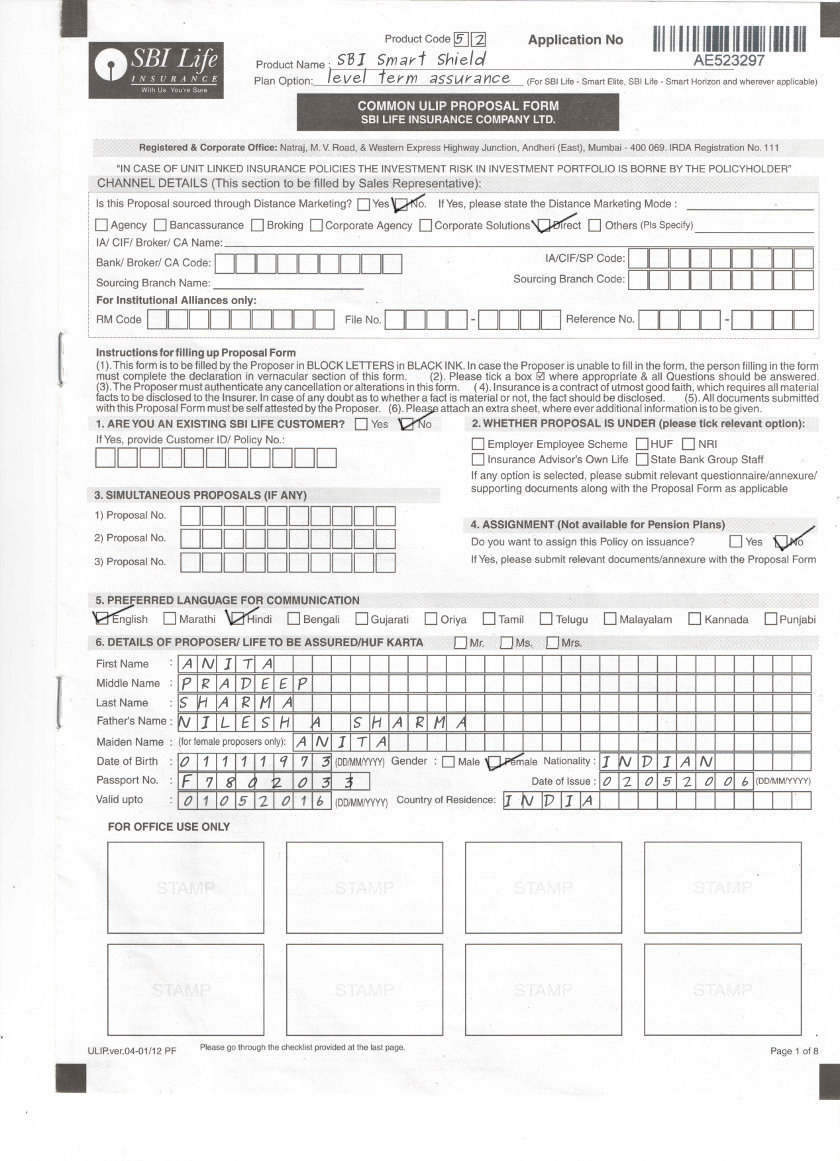 Product Code 5 2
Application No
SBI Life
INSURANCE
With Us You're Sure
Product Name : SBI Smart Shield
AE523297
Plan Option: level term assurance (For SBI Life - Smart Elite, SBI Life - Smart Horizon and wherever applicable)
COMMON ULIP PROPOSAL FORM
SBI LIFE INSURANCE COMPANY LTD.
Registered & Corporate Office: Natraj, M. V. Road, & Western Express Highway Junction, Andheri (East), Mumbai - 400 069. IRDA Registration No. 111
"IN CASE OF UNIT LINKED INSURANCE POLICIES THE INVESTMENT RISK IN INVESTMENT PORTFOLIO IS BORNE BY THE POLICYHOLDER"
CHANNEL DETAILS (This section to be filled by Sales Representative):
Is this Proposal sourced through Distance Marketing? Yes No. If Yes, please state the Distance Marketing Mode :
Agency Bancassurance Broking Corporate Agency Corporate Solutions Direct Others (Pls Specify)
IA/ CIF/ Broker/ CA Name:
Bank/ Broker/ CA Code: IA/CIF/SP Code:
Sourcing Branch Name: Sourcing Branch Code:
For Institutional Alliances only:
RM Code File No. - Reference No. -
Instructions for filling up Proposal Form
(1). This form is to be filled by the Proposer in BLOCK LETTERS in BLACK INK. In case the Proposer is unable to fill in the form, the person filling in the form
must complete the declaration in vernacular section of this form. (2). Please tick a box ☑ where appropriate & all Questions should be answered.
(3). The Proposer must authenticate any cancellation or alterations in this form. (4). Insurance is a contract of utmost good faith, which requires all material
facts to be disclosed to the Insurer. In case of any doubt as to whether a fact is material or not, the fact should be disclosed. (5). All documents submitted
with this Proposal Form must be self attested by the Proposer. (6). Please attach an extra sheet, where ever additional information is to be given.
1. ARE YOU AN EXISTING SBI LIFE CUSTOMER? Yes No
If Yes, provide Customer ID/ Policy No.:
2. WHETHER PROPOSAL IS UNDER (please tick relevant option):
Employer Employee Scheme HUF NRI
Insurance Advisor's Own Life State Bank Group Staff
If any option is selected, please submit relevant questionnaire/annexure/
supporting documents along with the Proposal Form as applicable
3. SIMULTANEOUS PROPOSALS (IF ANY)
1) Proposal No.
2) Proposal No.
3) Proposal No.
4. ASSIGNMENT (Not available for Pension Plans)
Do you want to assign this Policy on issuance? Yes No
If Yes, please submit relevant documents/annexure with the Proposal Form
5. PREFERRED LANGUAGE FOR COMMUNICATION
English Marathi Hindi Bengali Gujarati Oriya Tamil Telugu Malayalam Kannada Punjabi
6. DETAILS OF PROPOSER/ LIFE TO BE ASSURED/HUF KARTA Mr. Ms. Mrs.
First Name : ANITA
Middle Name : PRADEEP
Last Name : SHARMA
Father's Name : NILESH A SHARMA
Maiden Name : (for female proposers only): ANITA
Date of Birth : 01111973 (DD/MM/YYYY) Gender : Male Female Nationality : INDIAN
Passport No. : F7802033 Date of Issue : 02052006 (DD/MM/YYYY)
Valid upto : 01052016 (DD/MM/YYYY) Country of Residence: INDIA
FOR OFFICE USE ONLY
STAMP STAMP STAMP STAMP
STAMP STAMP STAMP STAMP
ULIP.ver.04-01/12 PF Please go through the checklist provided at the last page. Page 1 of 8